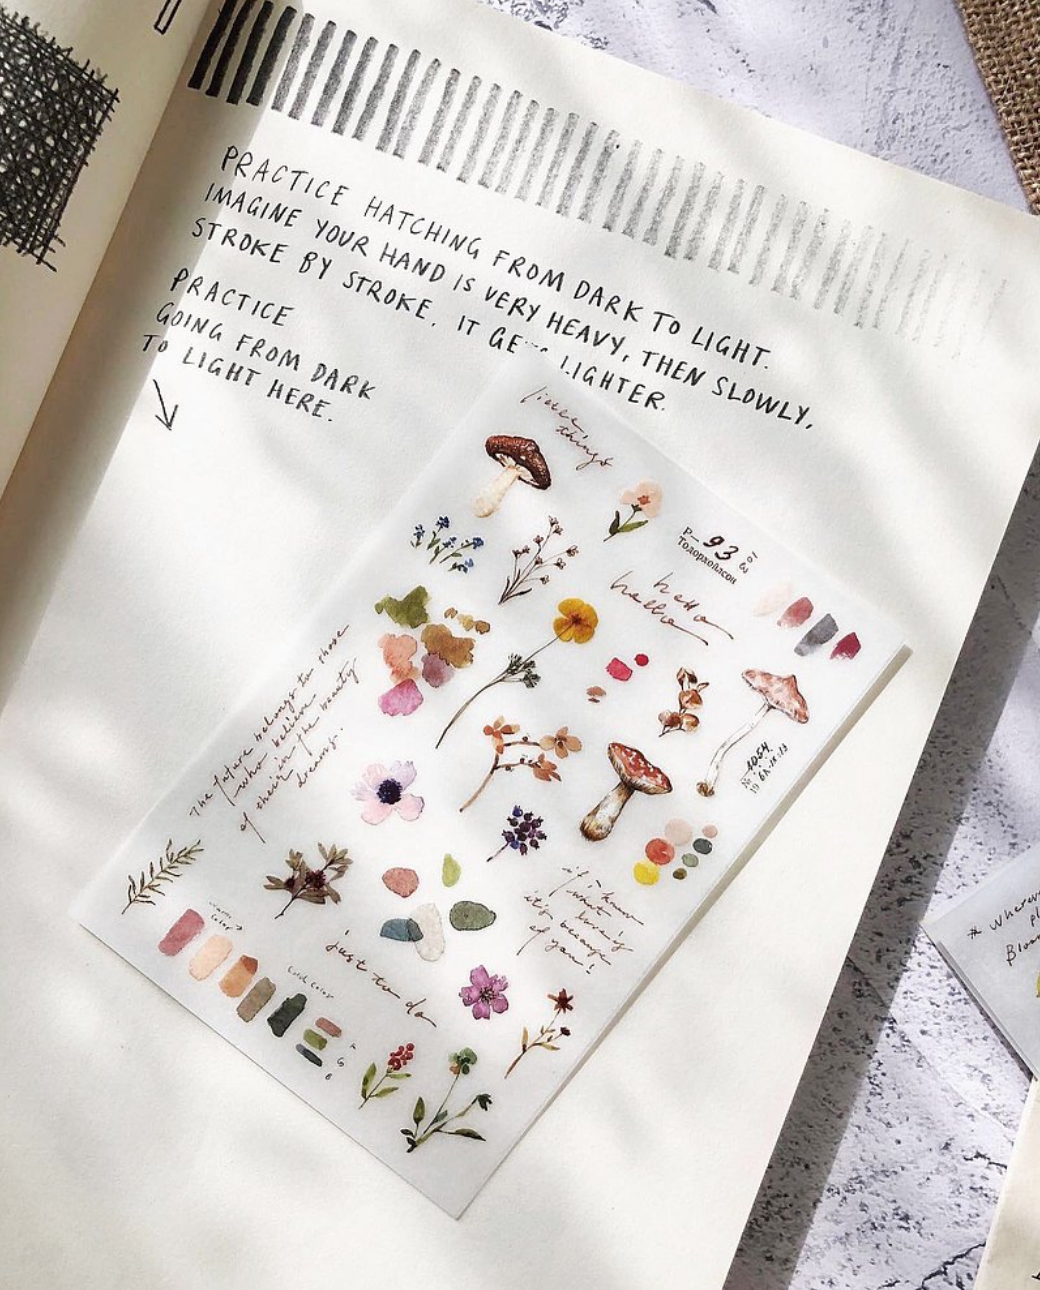 PRACTICE HATCHING FROM DARK TO LIGHT.
IMAGINE YOUR HAND IS VERY HEAVY, THEN SLOWLY,
STROKE BY STROKE, IT LIGHTER.
PRACTICE
GOING FROM DARK
TO LIGHT HERE.
things
93
Тодорхойлсон
hello
hello
The future belongs to those
who believe
in the beauty
of their
dreams.
1054
if I know
what
love is
it's because
of you!
color
just to do
Cold Color